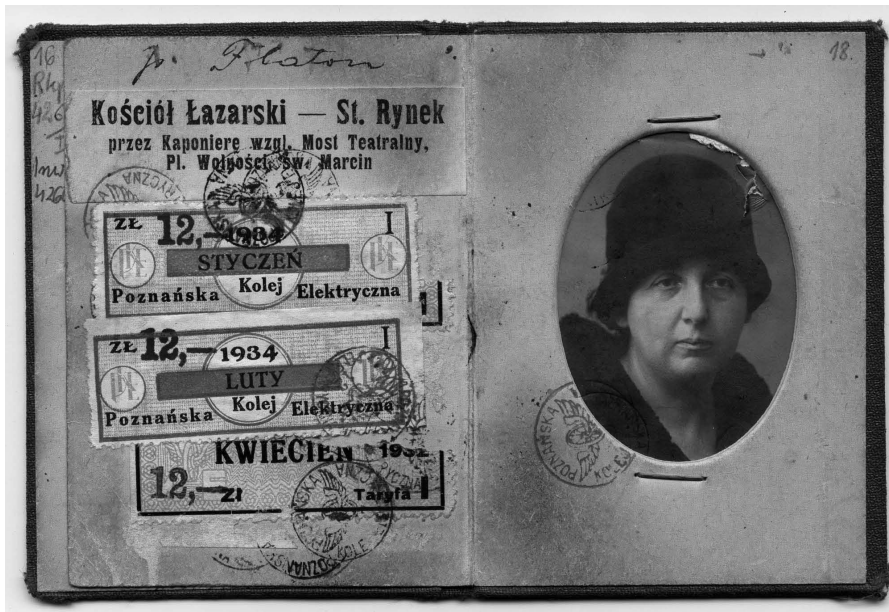 16
Rkp
426
I
Inw
426
p. Flaton
18.
Kościół Łazarski — St. Rynek
przez Kaponierę wzgl. Most Teatralny,
Pl. Wolności, św. Marcin
ZŁ 12,— 1934 I
STYCZEŃ
Poznańska Kolej Elektryczna
I
ZŁ 12,— 1934 I
LUTY
Poznańska Kolej Elektryczna
KWIECIEŃ 1932
12,— Zł Taryfa I
POZNAŃSKA
KOLEJ
POZNAŃSKA KOLEJ